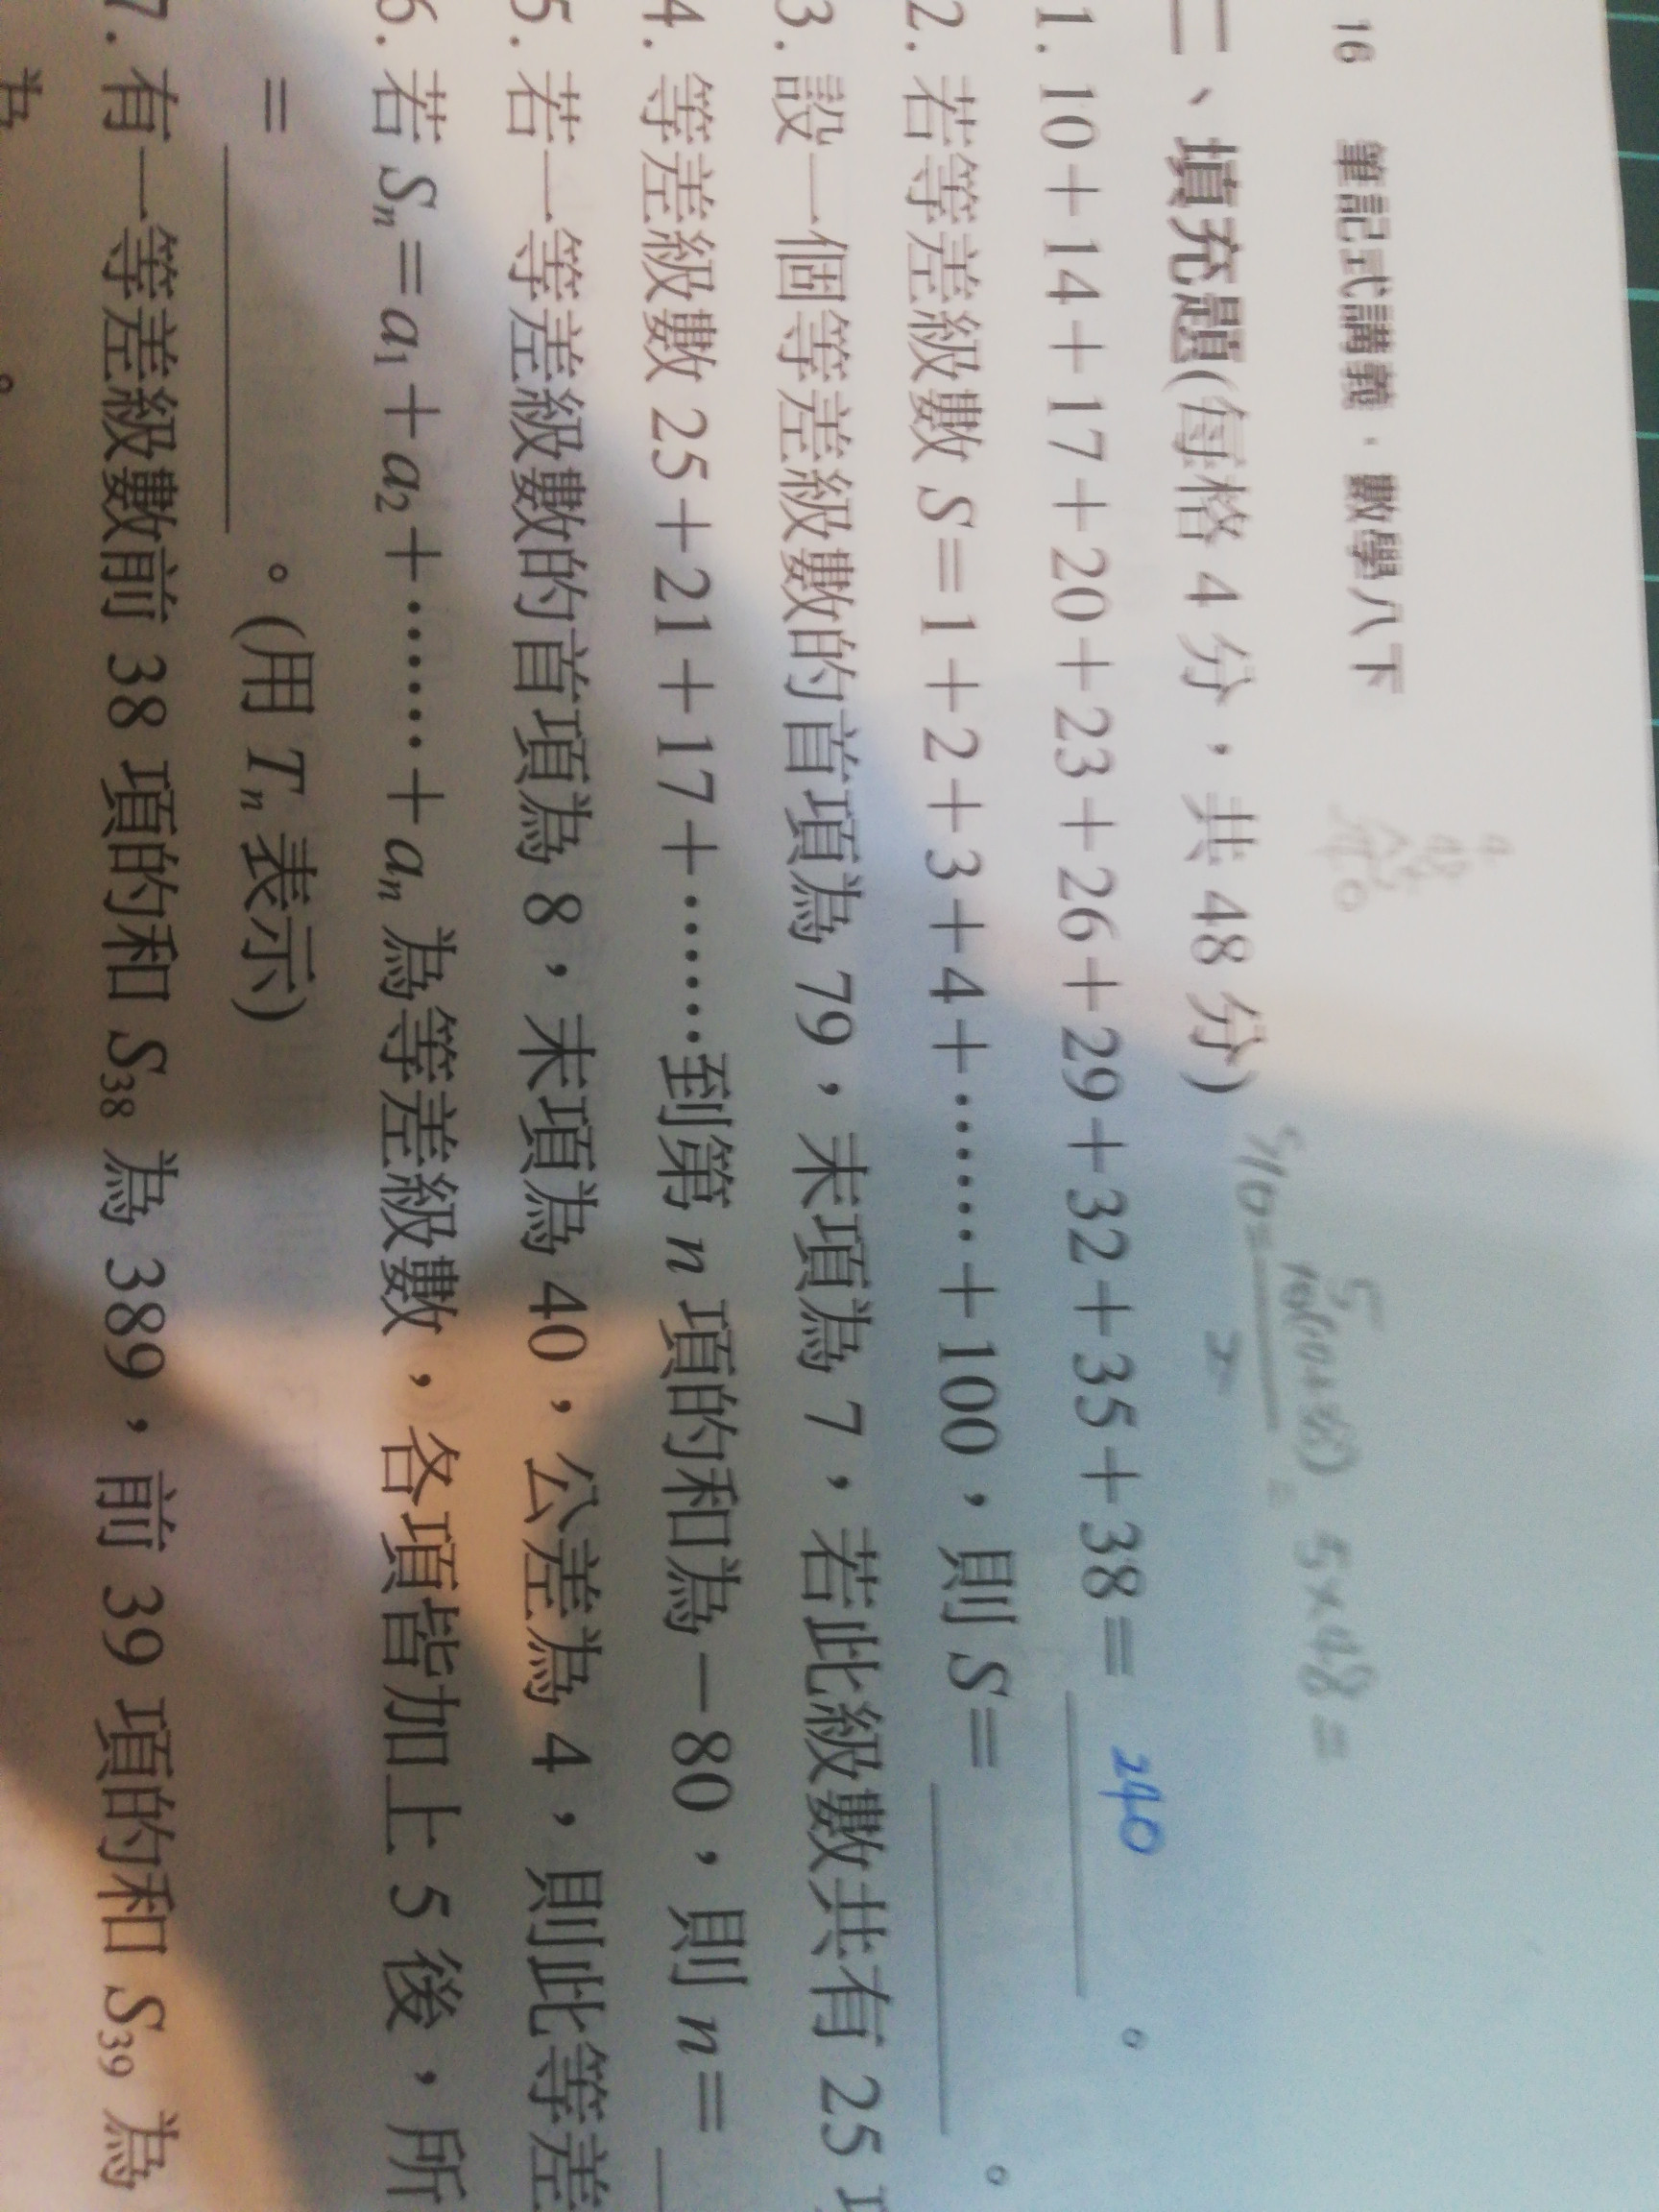 16 筆記式講義·數學八下
5×48=
二、填充題(每格 4 分，共 48 分)
1. 10＋14＋17＋20＋23＋26＋29＋32＋35＋38＝ 240 。
2. 若等差級數 S＝1＋2＋3＋4＋……＋100，則 S＝ 。
3. 設一個等差級數的首項為 79，末項為 7，若此級數共有 25
4. 等差級數 25＋21＋17＋……到第 n 項的和為－80，則 n＝
5. 若一等差級數的首項為 8，末項為 40，公差為 4，則此等差
6. 若 Sₙ＝a₁＋a₂＋……＋aₙ 為等差級數，各項皆加上 5 後，所
＝ 。(用 Tₙ 表示)
7. 有一等差級數前 38 項的和 S₃₈ 為 389，前 39 項的和 S₃₉ 為
為 。